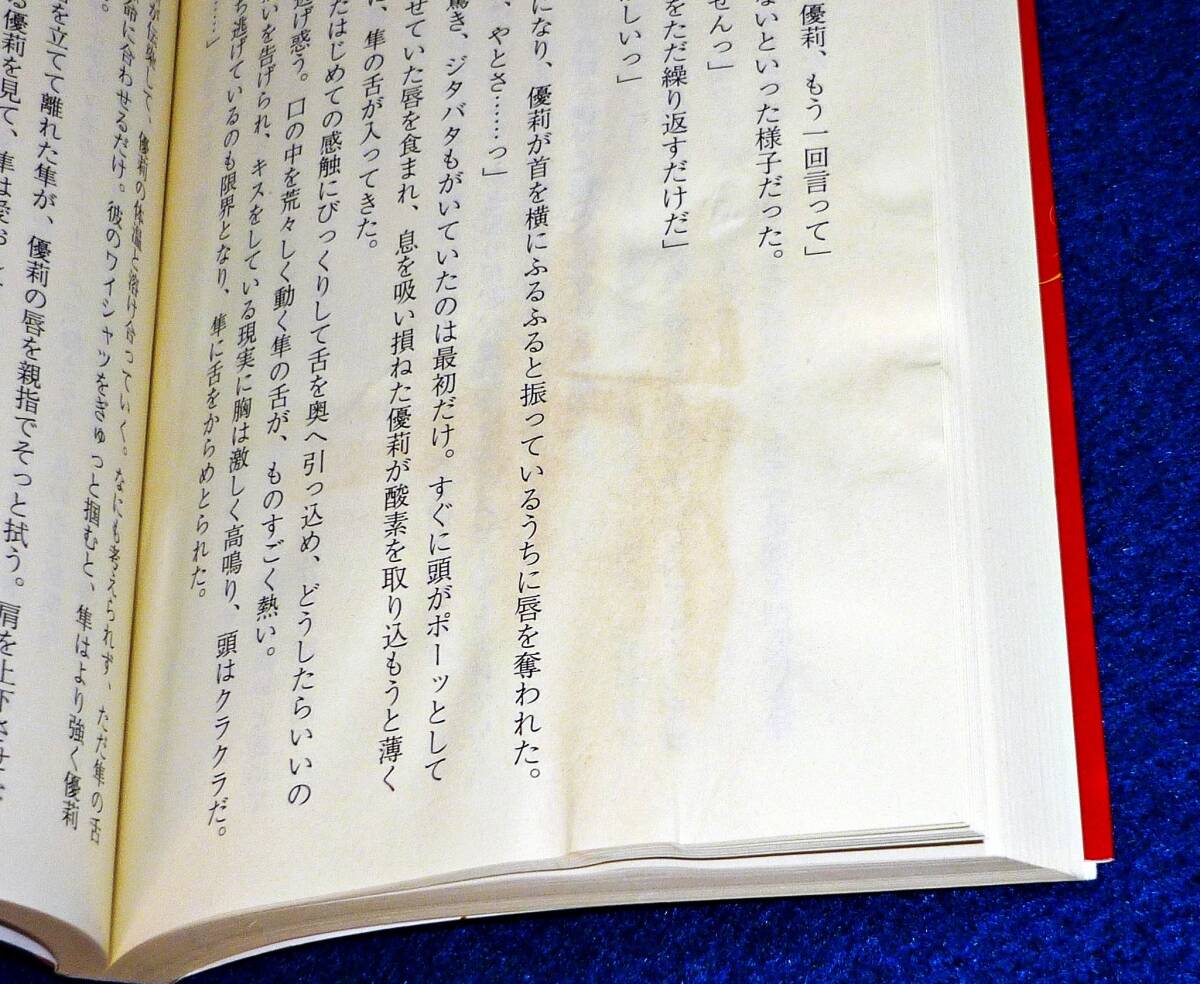 優莉、もう一回言って」
ないといった様子だった。
せんっ」
をただ繰り返すだけだ」
しいっ」
になり、優莉が首を横にふるふると振っているうちに唇を奪われた。
、やとさ……っ」
驚き、ジタバタもがいていたのは最初だけ。すぐに頭がポーッとして
せていた唇を食まれ、息を吸い損ねた優莉が酸素を取り込もうと薄く
に、隼の舌が入ってきた。
たはじめての感触にびっくりして舌を奥へ引っ込め、どうしたらいいの
逃げ惑う。口の中を荒々しく動く隼の舌が、ものすごく熱い。
いを告げられ、キスをしている現実に胸は激しく高鳴り、頭はクラクラだ。
ち逃げているのも限界となり、隼に舌をからめとられた。
……」
して、優莉の体温と溶け合っていく。なにも考えられず、ただ隼の舌
命に合わせるだけ。彼のワイシャツをぎゅっと掴むと、隼はより強く優莉
を立てて離れた隼が、優莉の唇を親指でそっと拭う。肩を上下させ
る優莉を見て、隼は